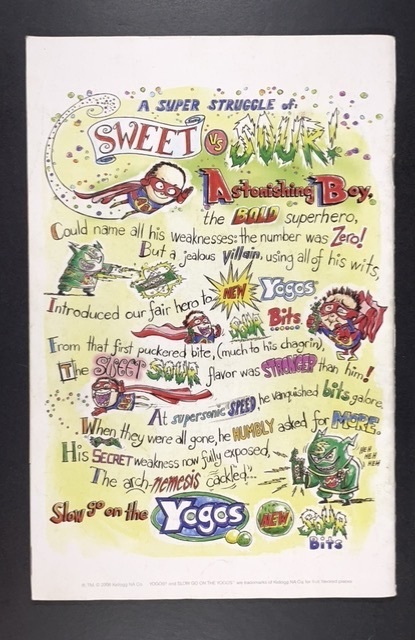 A SUPER STRUGGLE of:
SWEET VS SOUR!
Astonishing Boy,
the BOLD superhero,
Could name all his weaknesses: the number was Zero!
But a jealous villain, using all of his wits,
Introduced our fair hero to NEW Yogos
SOUR Bits.
From that first puckered bite, (much to his chagrin)
The SWEET SOUR flavor was STRONGER than him!
At supersonic SPEED he vanquished bits galore.
When they were all gone, he HUMBLY asked for MORE.
His SECRET weakness now fully exposed,
HEH
HEH
HEH
The arch-nemesis cackled...
Slow go on the Yogos NEW SOUR
BITS